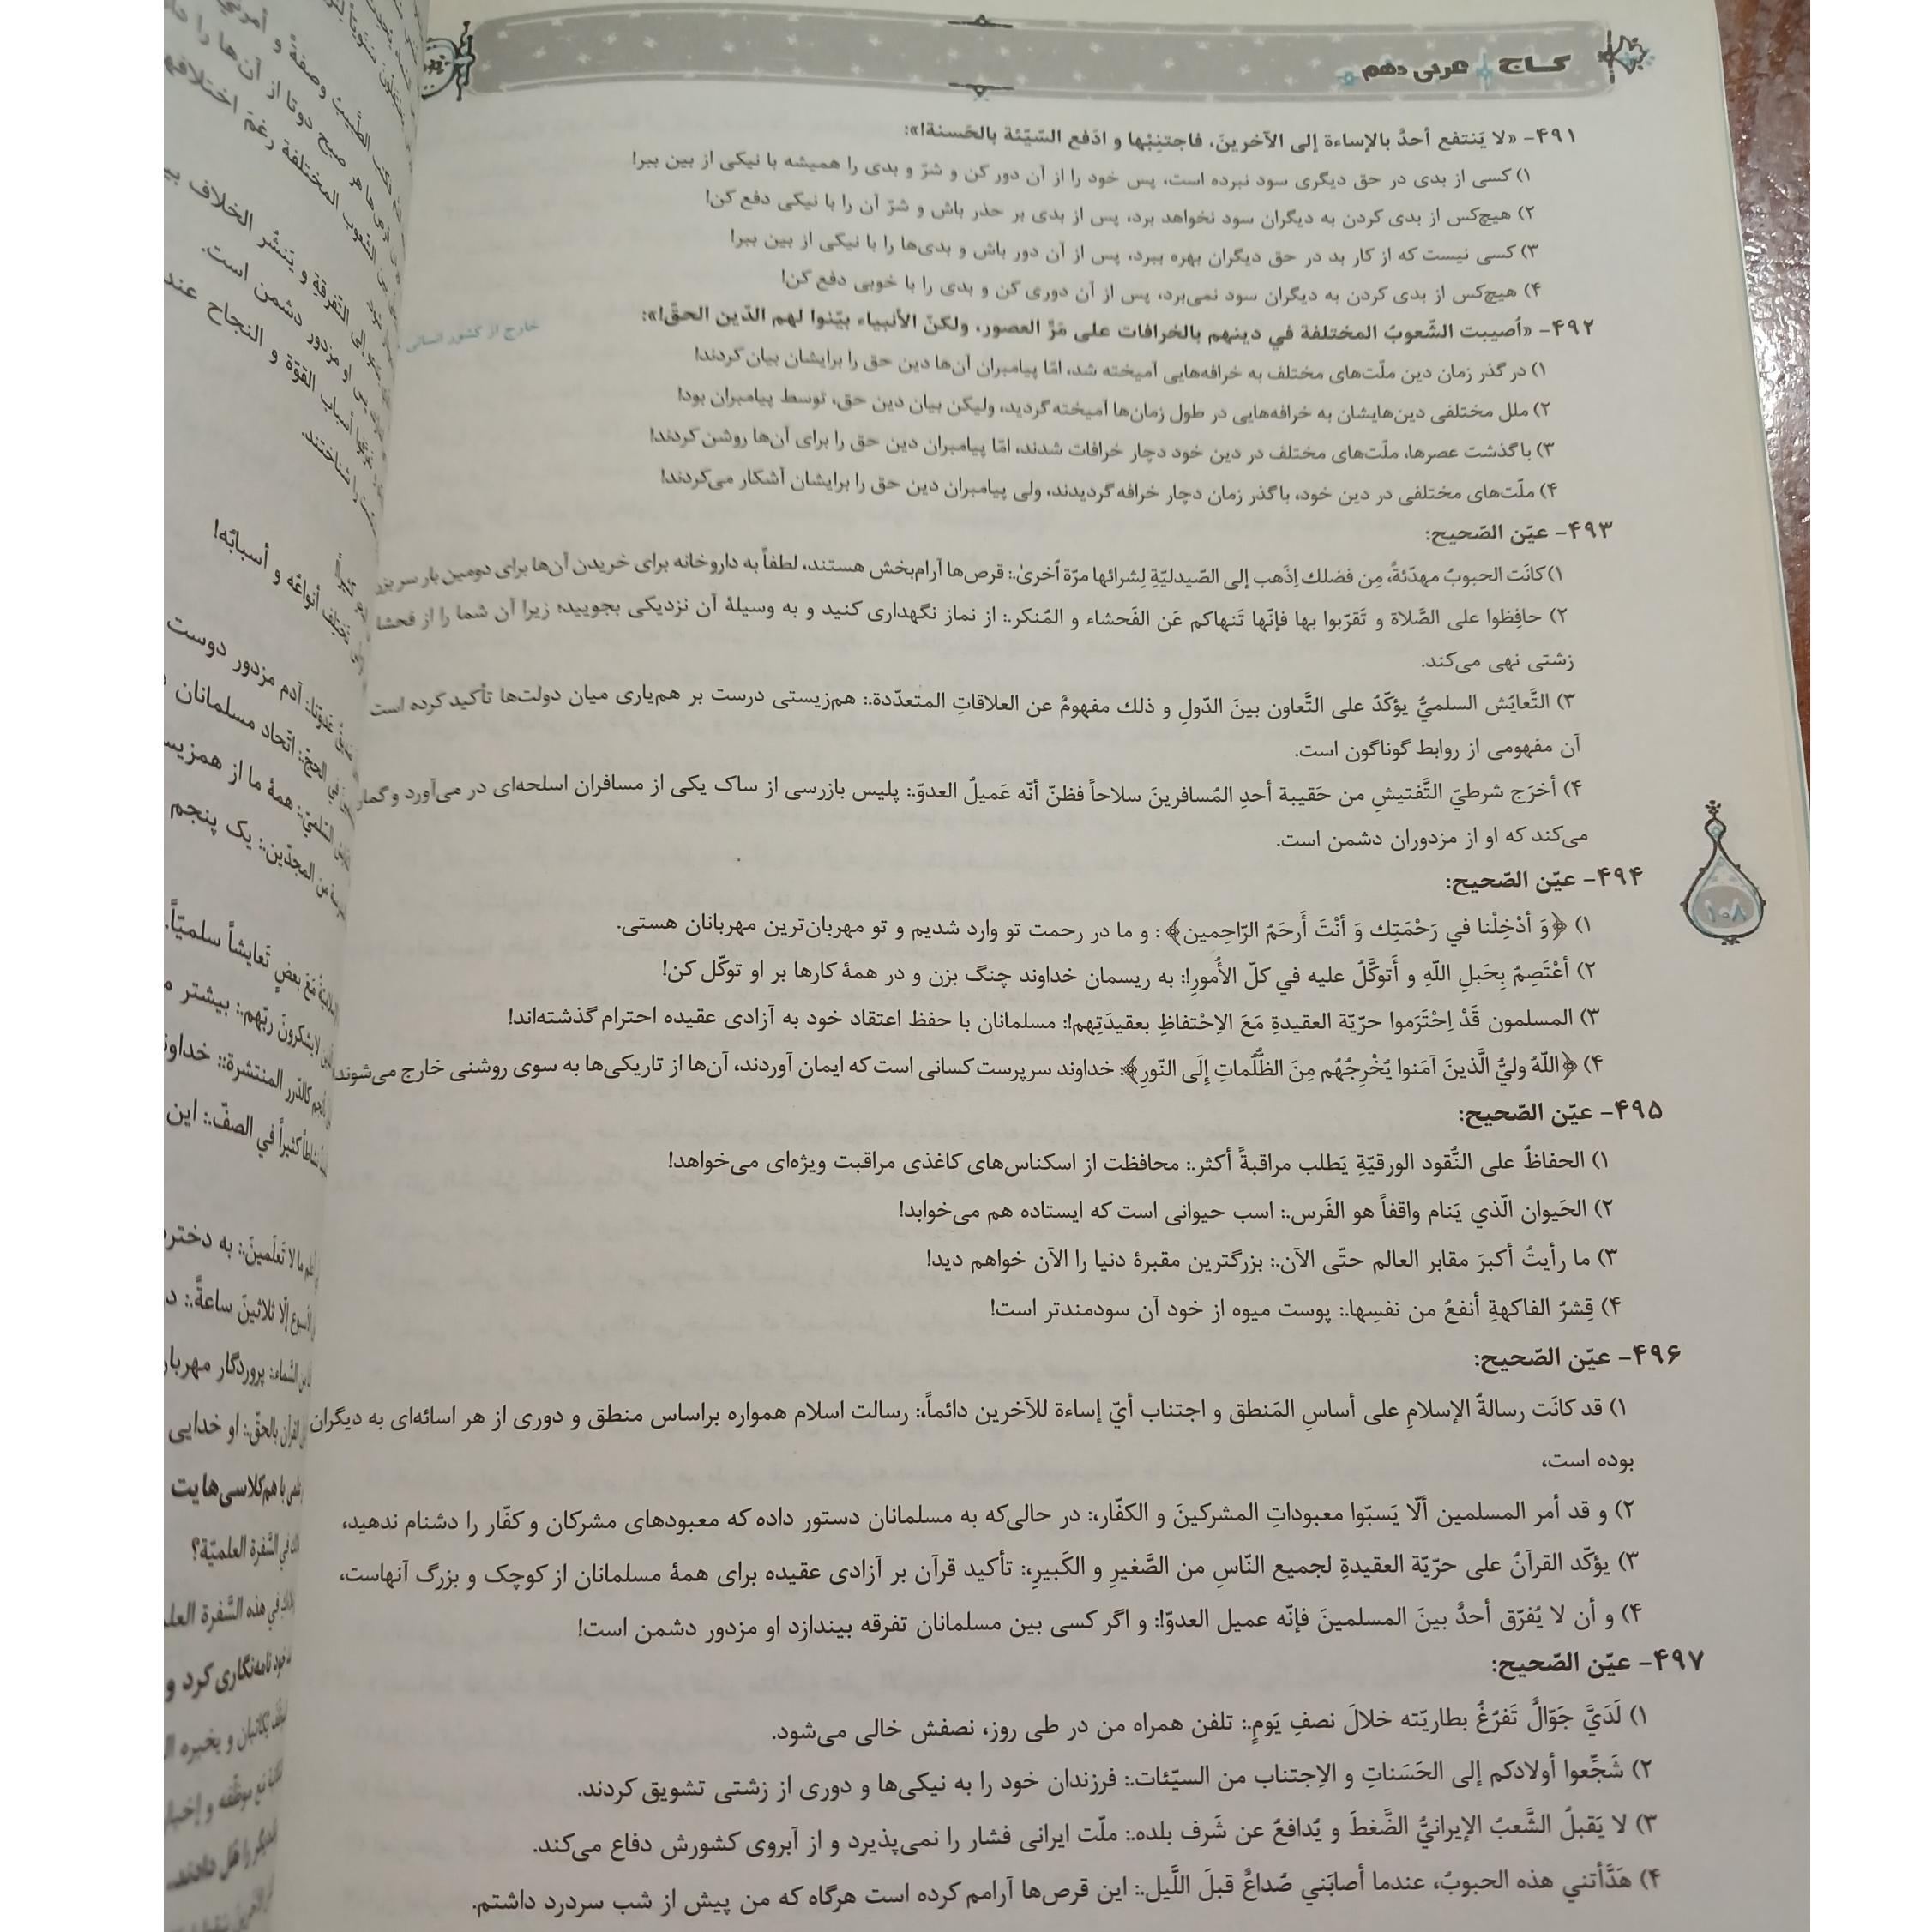 کاج عربی دهم
۴۹۱- «لا یَنتفع أحدٌ بالإساءة إلی الآخرینَ، فاجتنِبْها و ادفع السّیّئة بالحَسنة!»:
۱) کسی از بدی در حق دیگری سود نبرده است، پس خود را از آن دور کن و شرّ و بدی را همیشه با نیکی از بین ببر!
۲) هیچ‌کس از بدی کردن به دیگران سود نخواهد برد، پس از بدی بر حذر باش و شرّ آن را با نیکی دفع کن!
۳) کسی نیست که از کار بد در حق دیگران بهره ببرد، پس از آن دور باش و بدی‌ها را با نیکی از بین ببر!
۴) هیچ‌کس از بدی کردن به دیگران سود نمی‌برد، پس از آن دوری کن و بدی را با خوبی دفع کن!
۴۹۲- «اُصیبت الشّعوبُ المختلفة في دینهم بالخرافات علی مَرِّ العصور، ولکنّ الأنبیاء بیّنوا لهم الدّین الحقّ!»:
خارج از کشور انسانی
۱) در گذر زمان دین ملّت‌های مختلف به خرافه‌هایی آمیخته شد، امّا پیامبران آن‌ها دین حق را برایشان بیان کردند!
۲) ملل مختلفی دین‌هایشان به خرافه‌هایی در طول زمان‌ها آمیخته گردید، ولیکن بیان دین حق، توسط پیامبران بود!
۳) با گذشت عصرها، ملّت‌های مختلف در دین خود دچار خرافات شدند، امّا پیامبران دین حق را برای آن‌ها روشن کردند!
۴) ملّت‌های مختلفی در دین خود، با گذر زمان دچار خرافه گردیدند، ولی پیامبران دین حق را برایشان آشکار می‌کردند!
۴۹۳- عیّن الصّحیح:
۱) کانَت الحبوبُ مهدّئةً، مِن فضلك اِذهَب إلی الصّیدلیّةِ لِشرائها مرّة اُخریٰ.: قرص‌ها آرام‌بخش هستند، لطفاً به داروخانه برای خریدن آن‌ها برای دومین بار سر بزن
۲) حافِظوا علی الصَّلاة و تَقرّبوا بها فإنّها تَنهاکم عَن الفَحشاء و المُنکر.: از نماز نگهداری کنید و به وسیلهٔ آن نزدیکی بجویید؛ زیرا آن شما را از فحشا
زشتی نهی می‌کند.
۳) التَّعایُش السلميُّ یؤکّدُ علی التَّعاون بینَ الدّولِ و ذلك مفهومٌ عن العلاقاتِ المتعدّدة.: هم‌زیستی درست بر هم‌یاری میان دولت‌ها تأکید کرده است
آن مفهومی از روابط گوناگون است.
۴) أخرَج شرطيّ التَّفتیشِ من حَقیبة أحدِ المُسافرینَ سلاحاً فظنّ أنّه عَمیلُ العدوّ.: پلیس بازرسی از ساک یکی از مسافران اسلحه‌ای در می‌آورد و گمان
می‌کند که او از مزدوران دشمن است.
۴۹۴- عیّن الصّحیح:
۱) ﴿وَ أدْخِلْنا في رَحْمَتِك وَ أنْتَ أَرحَمُ الرّاحِمین﴾: و ما در رحمت تو وارد شدیم و تو مهربان‌ترین مهربانان هستی.
۲) أعْتَصِمُ بِحَبلِ اللّهِ و أَتوکَّلُ علیه في کلّ الأُمورِ!: به ریسمان خداوند چنگ بزن و در همهٔ کارها بر او توکّل کن!
۳) المسلمون قَدْ اِحْتَرَموا حرّیّة العقیدةِ مَعَ الاِحْتفاظِ بعقیدَتِهم!: مسلمانان با حفظ اعتقاد خود به آزادی عقیده احترام گذشته‌اند!
۴) ﴿اللّهُ وليُّ الَّذینَ آمَنوا یُخْرِجُهُم مِنَ الظُّلُماتِ إِلَی النّورِ﴾: خداوند سرپرست کسانی است که ایمان آوردند، آن‌ها از تاریکی‌ها به سوی روشنی خارج می‌شوند!
۴۹۵- عیّن الصّحیح:
۱) الحفاظُ علی النُّقود الورقیّةِ یَطلب مراقبةً أکثر.: محافظت از اسکناس‌های کاغذی مراقبت ویژه‌ای می‌خواهد!
۲) الحَیوان الّذي یَنام واقفاً هو الفَرس.: اسب حیوانی است که ایستاده هم می‌خوابد!
۳) ما رأیتُ أکبرَ مقابر العالم حتّی الآن.: بزرگترین مقبرهٔ دنیا را الآن خواهم دید!
۴) قِشرُ الفاکهةِ أنفعُ من نفسِها.: پوست میوه از خود آن سودمندتر است!
۴۹۶- عیّن الصّحیح:
۱) قد کانَت رسالةُ الإسلامِ علی أساسِ المَنطق و اجتناب أيّ إساءة للآخرین دائماً،: رسالت اسلام همواره براساس منطق و دوری از هر اسائه‌ای به دیگران
بوده است،
۲) و قد أمر المسلمین ألّا یَسبّوا معبوداتِ المشرکینَ و الکفّار،: در حالی‌که به مسلمانان دستور داده که معبودهای مشرکان و کفّار را دشنام ندهید،
۳) یؤکّد القرآنُ علی حرّیّة العقیدةِ لجمیع النّاسِ من الصَّغیرِ و الکَبیرِ،: تأکید قرآن بر آزادی عقیده برای همهٔ مسلمانان از کوچک و بزرگ آنهاست،
۴) و أن لا یُفرّق أحدٌ بینَ المسلمینَ فإنّه عمیل العدوّ!: و اگر کسی بین مسلمانان تفرقه بیندازد او مزدور دشمن است!
۴۹۷- عیّن الصّحیح:
۱) لَدَيَّ جَوّالٌ تَفرُغُ بطاریّته خلالَ نصفِ یَومٍ.: تلفن همراه من در طی روز، نصفش خالی می‌شود.
۲) شَجِّعوا أولادکم إلی الحَسَناتِ و الاِجتناب من السیّئات.: فرزندان خود را به نیکی‌ها و دوری از زشتی تشویق کردند.
۳) لا یَقبلُ الشَّعبُ الإیرانيُّ الضَّغطَ و یُدافعُ عن شَرف بلده.: ملّت ایرانی فشار را نمی‌پذیرد و از آبروی کشورش دفاع می‌کند.
۴) هَدَّأتني هذه الحبوبُ، عندما أصابَني صُداعٌ قبلَ اللَّیل.: این قرص‌ها آرامم کرده است هرگاه که من پیش از شب سردرد داشتم.
۱۰۸